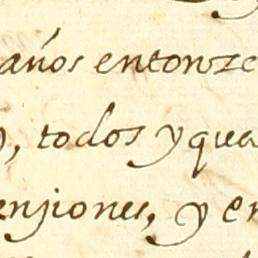 años entonze
, todos y qua
ensiones, y en